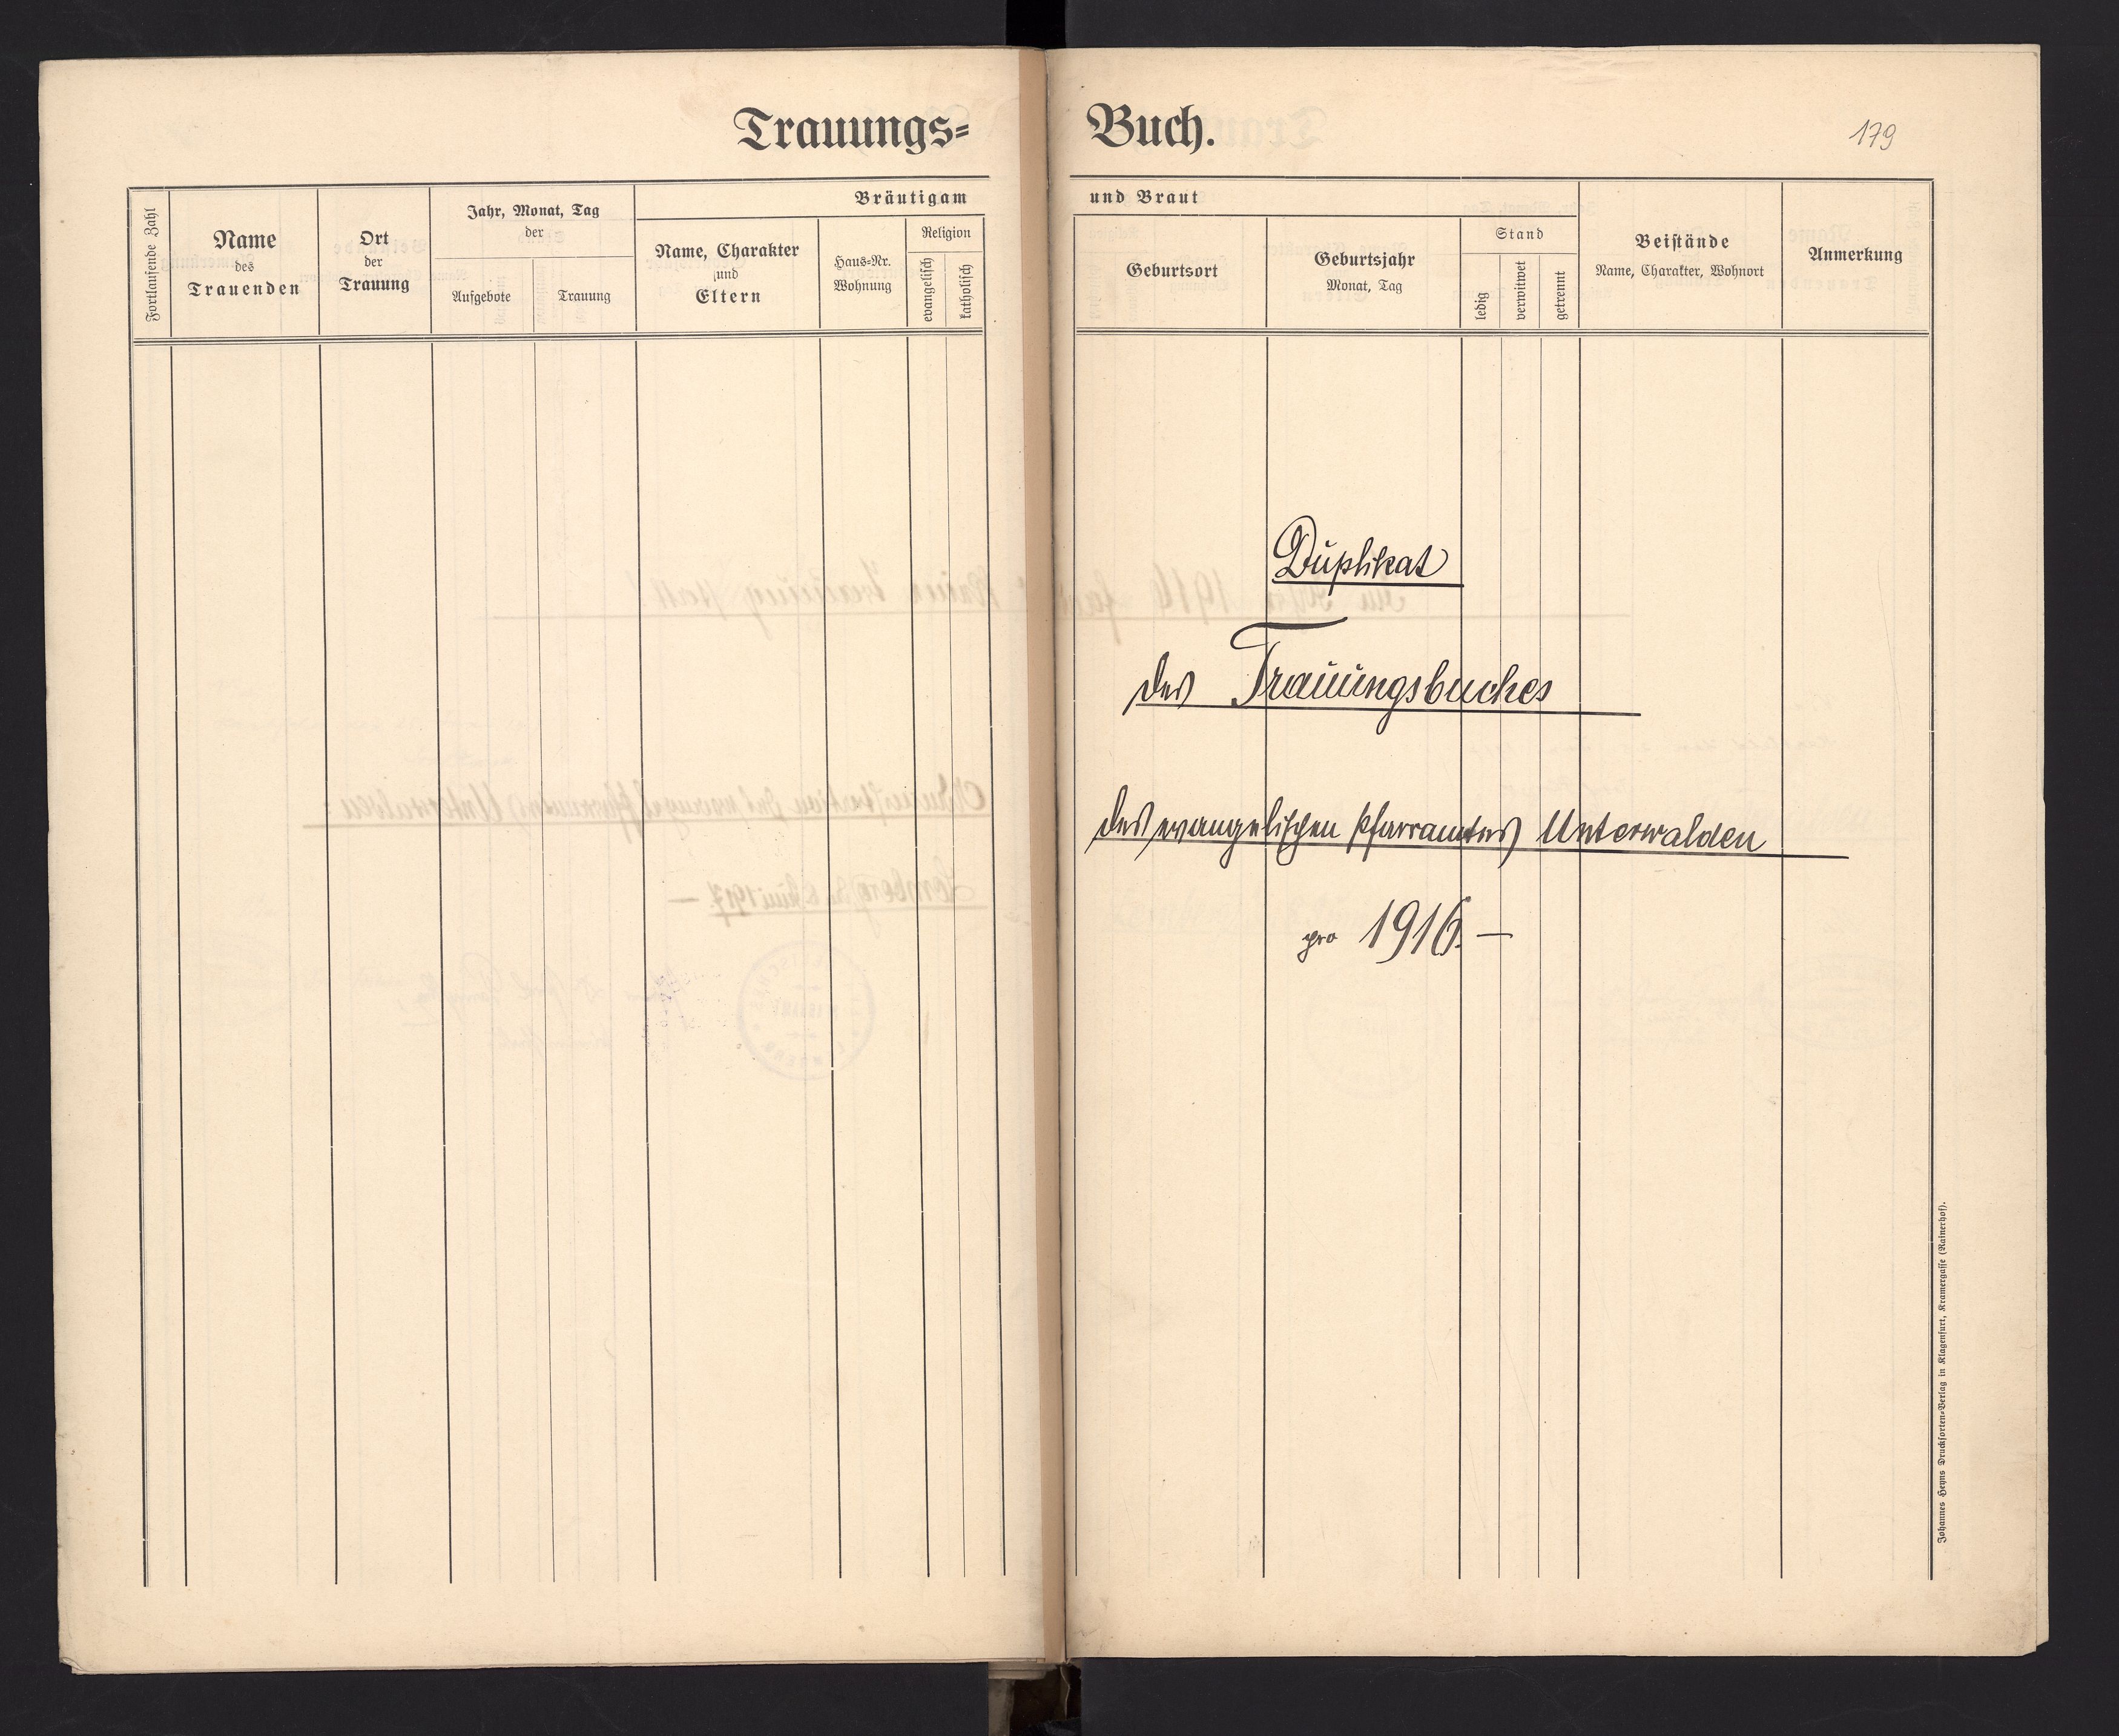 Trauungs= Buch.
179
Fortlaufende Zahl
Name
des
Trauenden
Ort
der
Trauung
Jahr, Monat, Tag
der
Aufgebote
Trauung
Bräutigam und Braut
Name, Charakter
und
Eltern
Haus-Nr.
Wohnung
Religion
evangelisch
katholisch
Geburtsort
Geburtsjahr
Monat, Tag
Stand
ledig
verwitwet
getrennt
Beistände
Name, Charakter, Wohnort
Anmerkung
Duplikat
des Trauungsbuches
des evangelischen Pfarramtes Unterwalden
pro 1916.—
Johannes Heyns Drucksorten=Verlag in Klagenfurt, Kramergasse (Rainerhof).